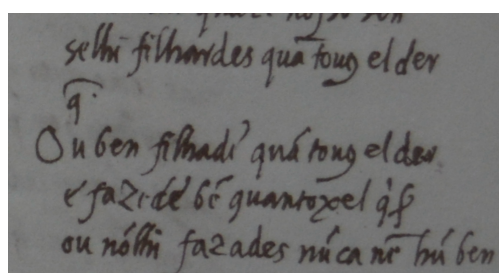 selhi filhardes quãtoug el der
q̃.
Ou ben filhadi quãtoug el der
e fazedē bẽ quantoxel q̃
ou nõlhi fazades nũca nẽ hũ ben